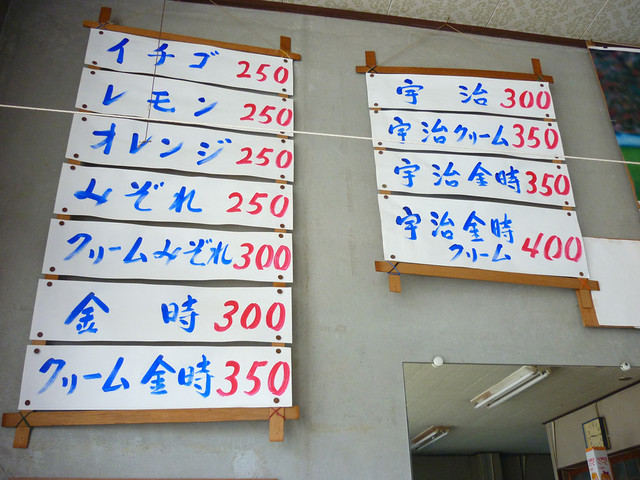 イチゴ 250
レモン 250
オレンジ 250
みぞれ 250
クリームみぞれ 300
金時 300
クリーム金時 350
宇治 300
宇治クリーム 350
宇治金時 350
宇治金時
クリーム 400